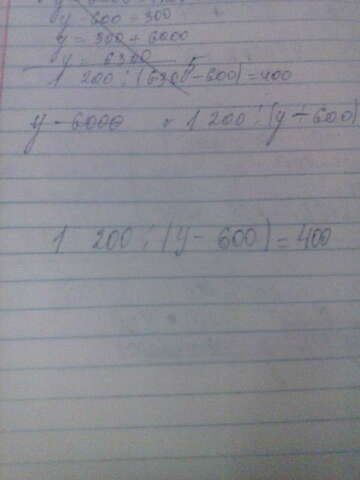 y - 600 = 300
y = 300 + 6000
y = 6300
1 200 : (6300 - 600) = 400
y - 6000 1 200 : (y - 600)
1 200 : (y - 600) = 400